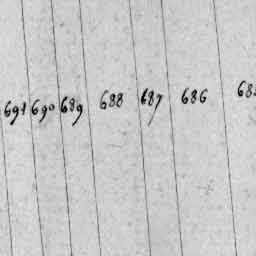 691 690 689 688 687 686